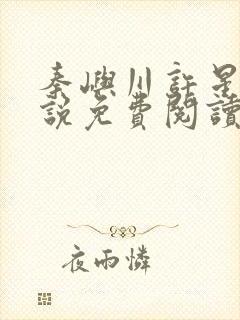 秦嶼川許星
說免費閱讀
夜雨憐